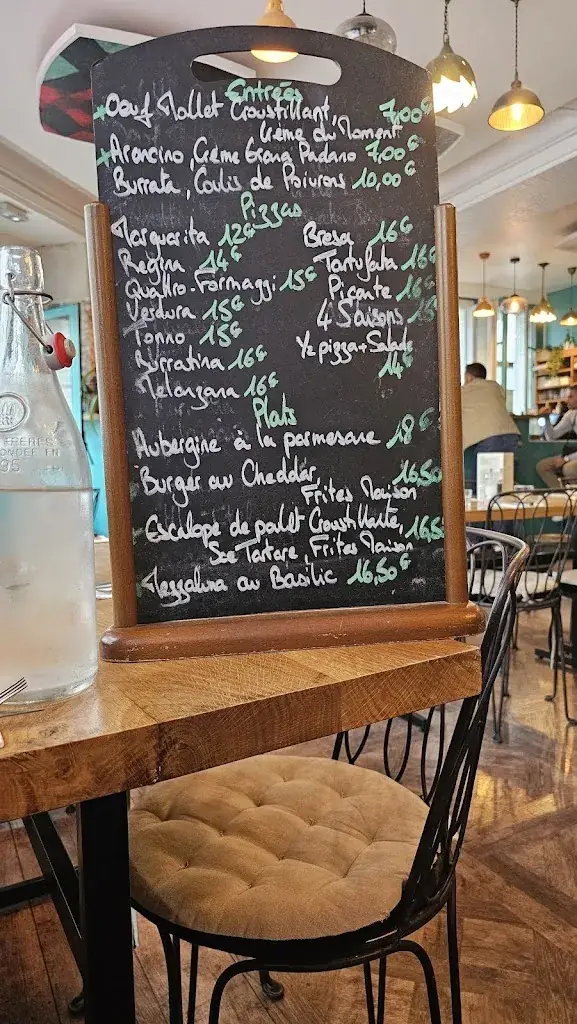 Entrées
Oeuf Mollet Croustillant, 7,00€
Crème du Moment
Arancino, Crème Grana Padano 7,00€
Burrata, Coulis de Poivrons 10,00€
Pizzas
Marguarita 12€
Regina 14€
Quattro-Formaggi 15€
Verdura 15€
Tonno 15€
Burratina 16€
Melanzana 16€
Bresa 16€
Tartufata 16€
Picante 16€
4 Saisons 15€
½ pizza + Salade
14€
Plats
Aubergine à la parmesane 18€
Burger au Cheddar, 16,50
Frites Maison
Escalope de poulet Croustillante, 16,50
Sce Tartare, Frites Maison
Mezzaluna au Basilic 16,50€